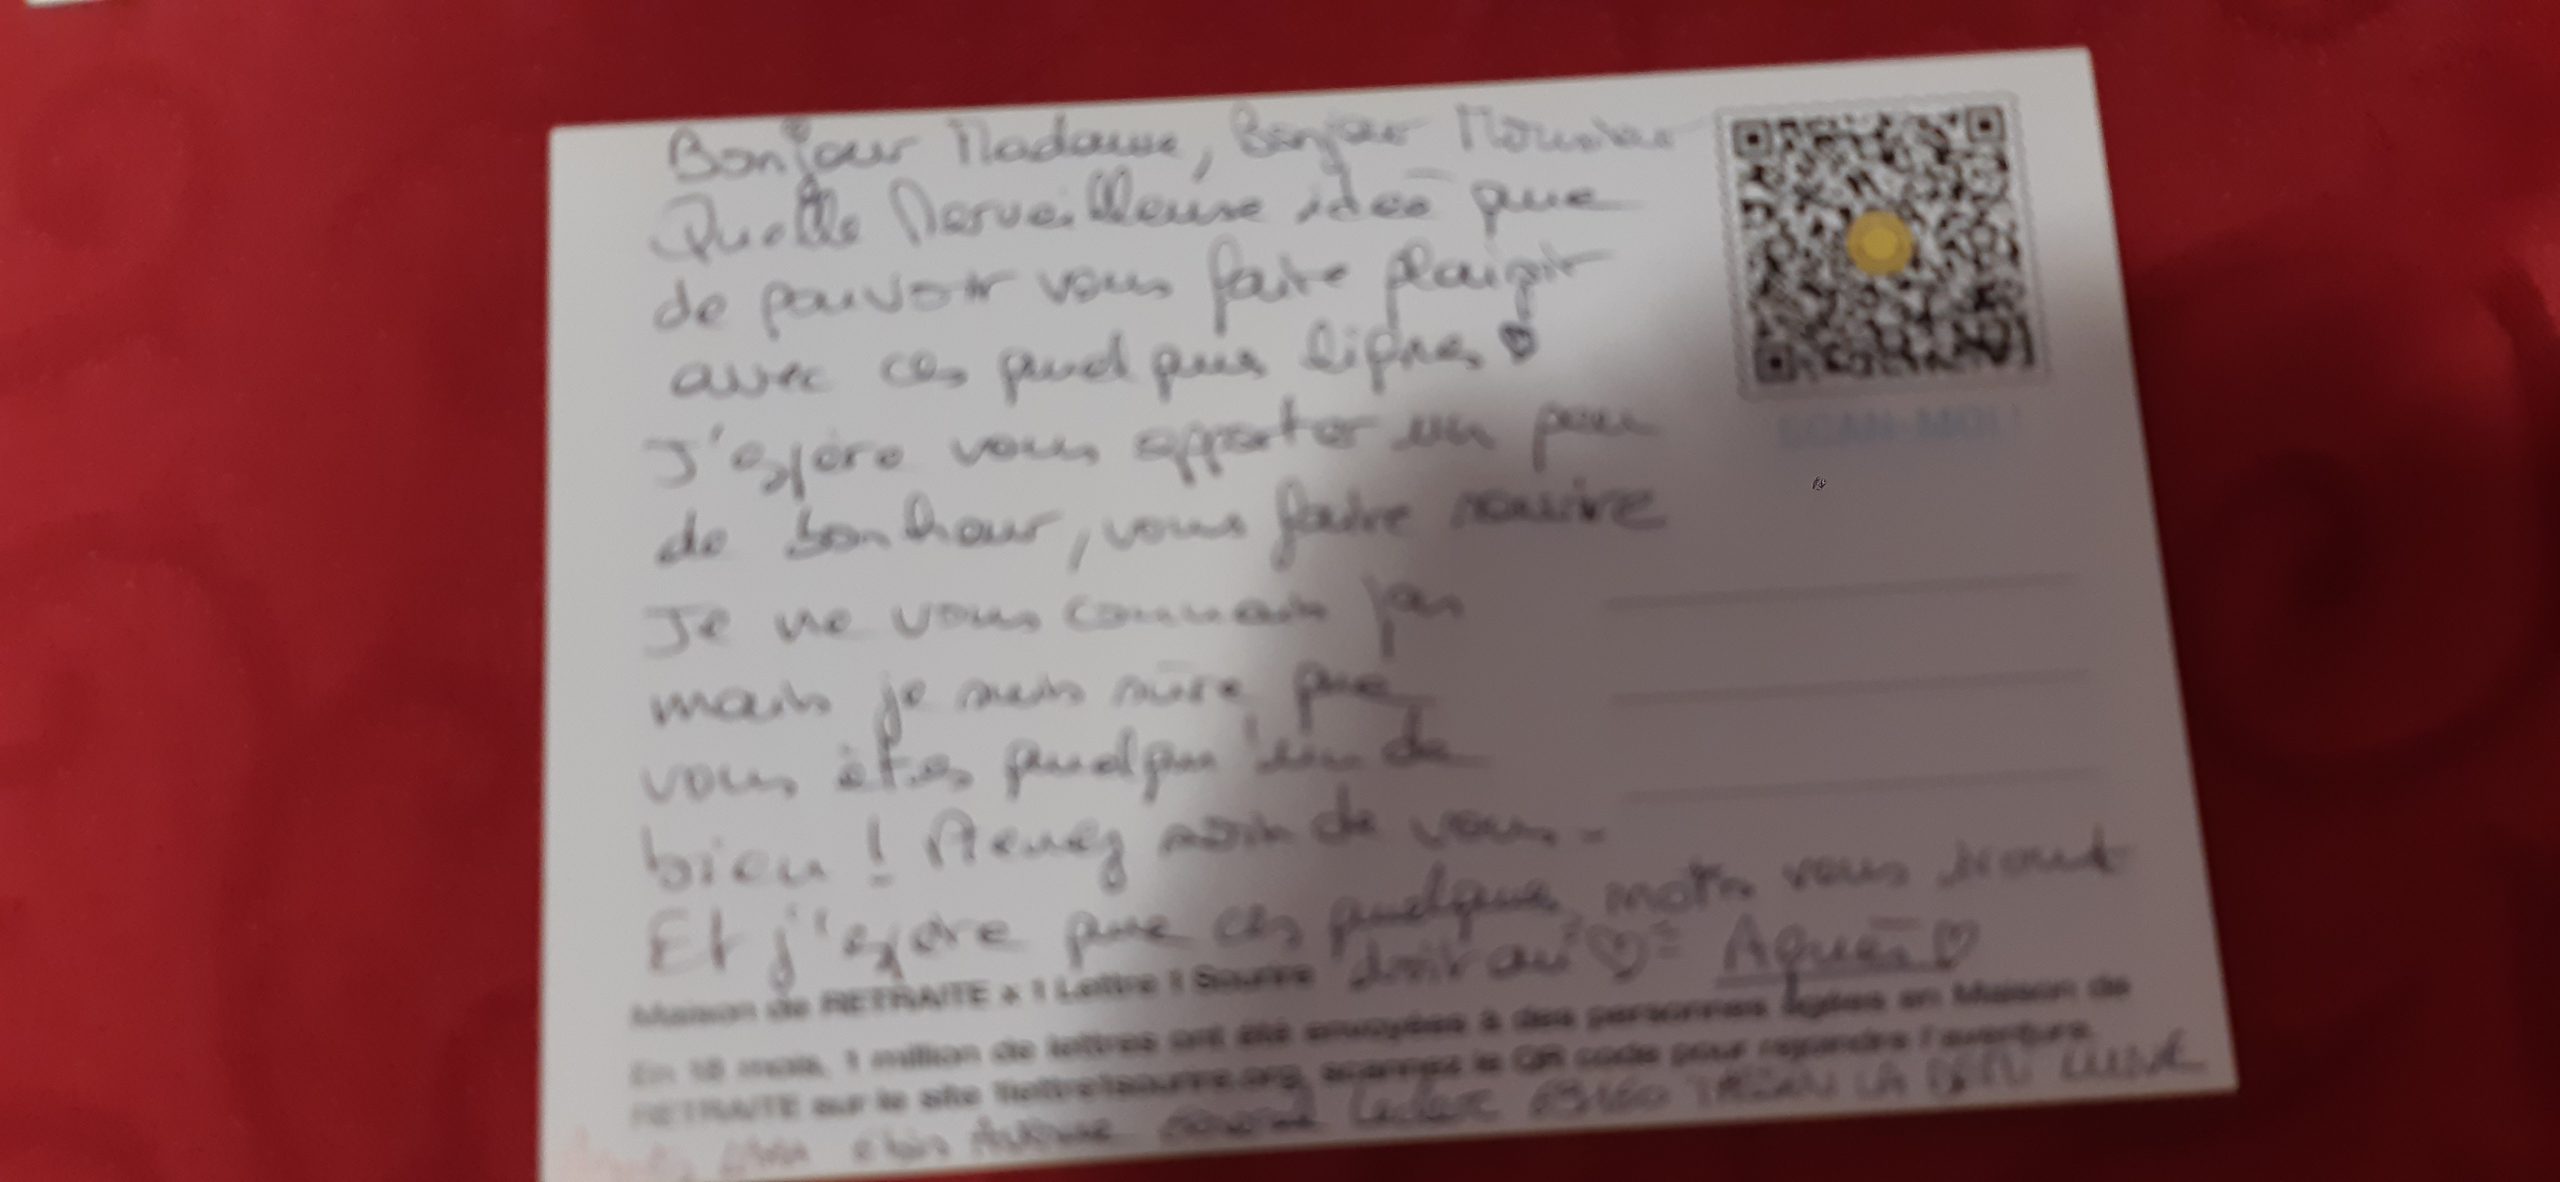 Bonjour Madame, Bonjour Monsieur
Quelle Merveilleuse idée que
de pouvoir vous faire plaisir
avec ces quelques lignes ♥
J'espère vous apporter un peu
de bonheur, vous faire sourire
Je ne vous connais pas
mais je suis sûre que
vous êtes quelqu'un de
bien ! Prenez soin de vous -
Et j'espère que ces quelques mots vous iront
droit au ♡ = Agnès ♡
SCAN-MOI !
Maison de RETRAITE x 1 Lettre 1 Sourire
En 18 mois, 1 million de lettres ont été envoyées à des personnes âgées en Maison de
RETRAITE sur le site 1lettre1sourire.org, scannez le QR code pour rejoindre l'aventure.
Leclerc